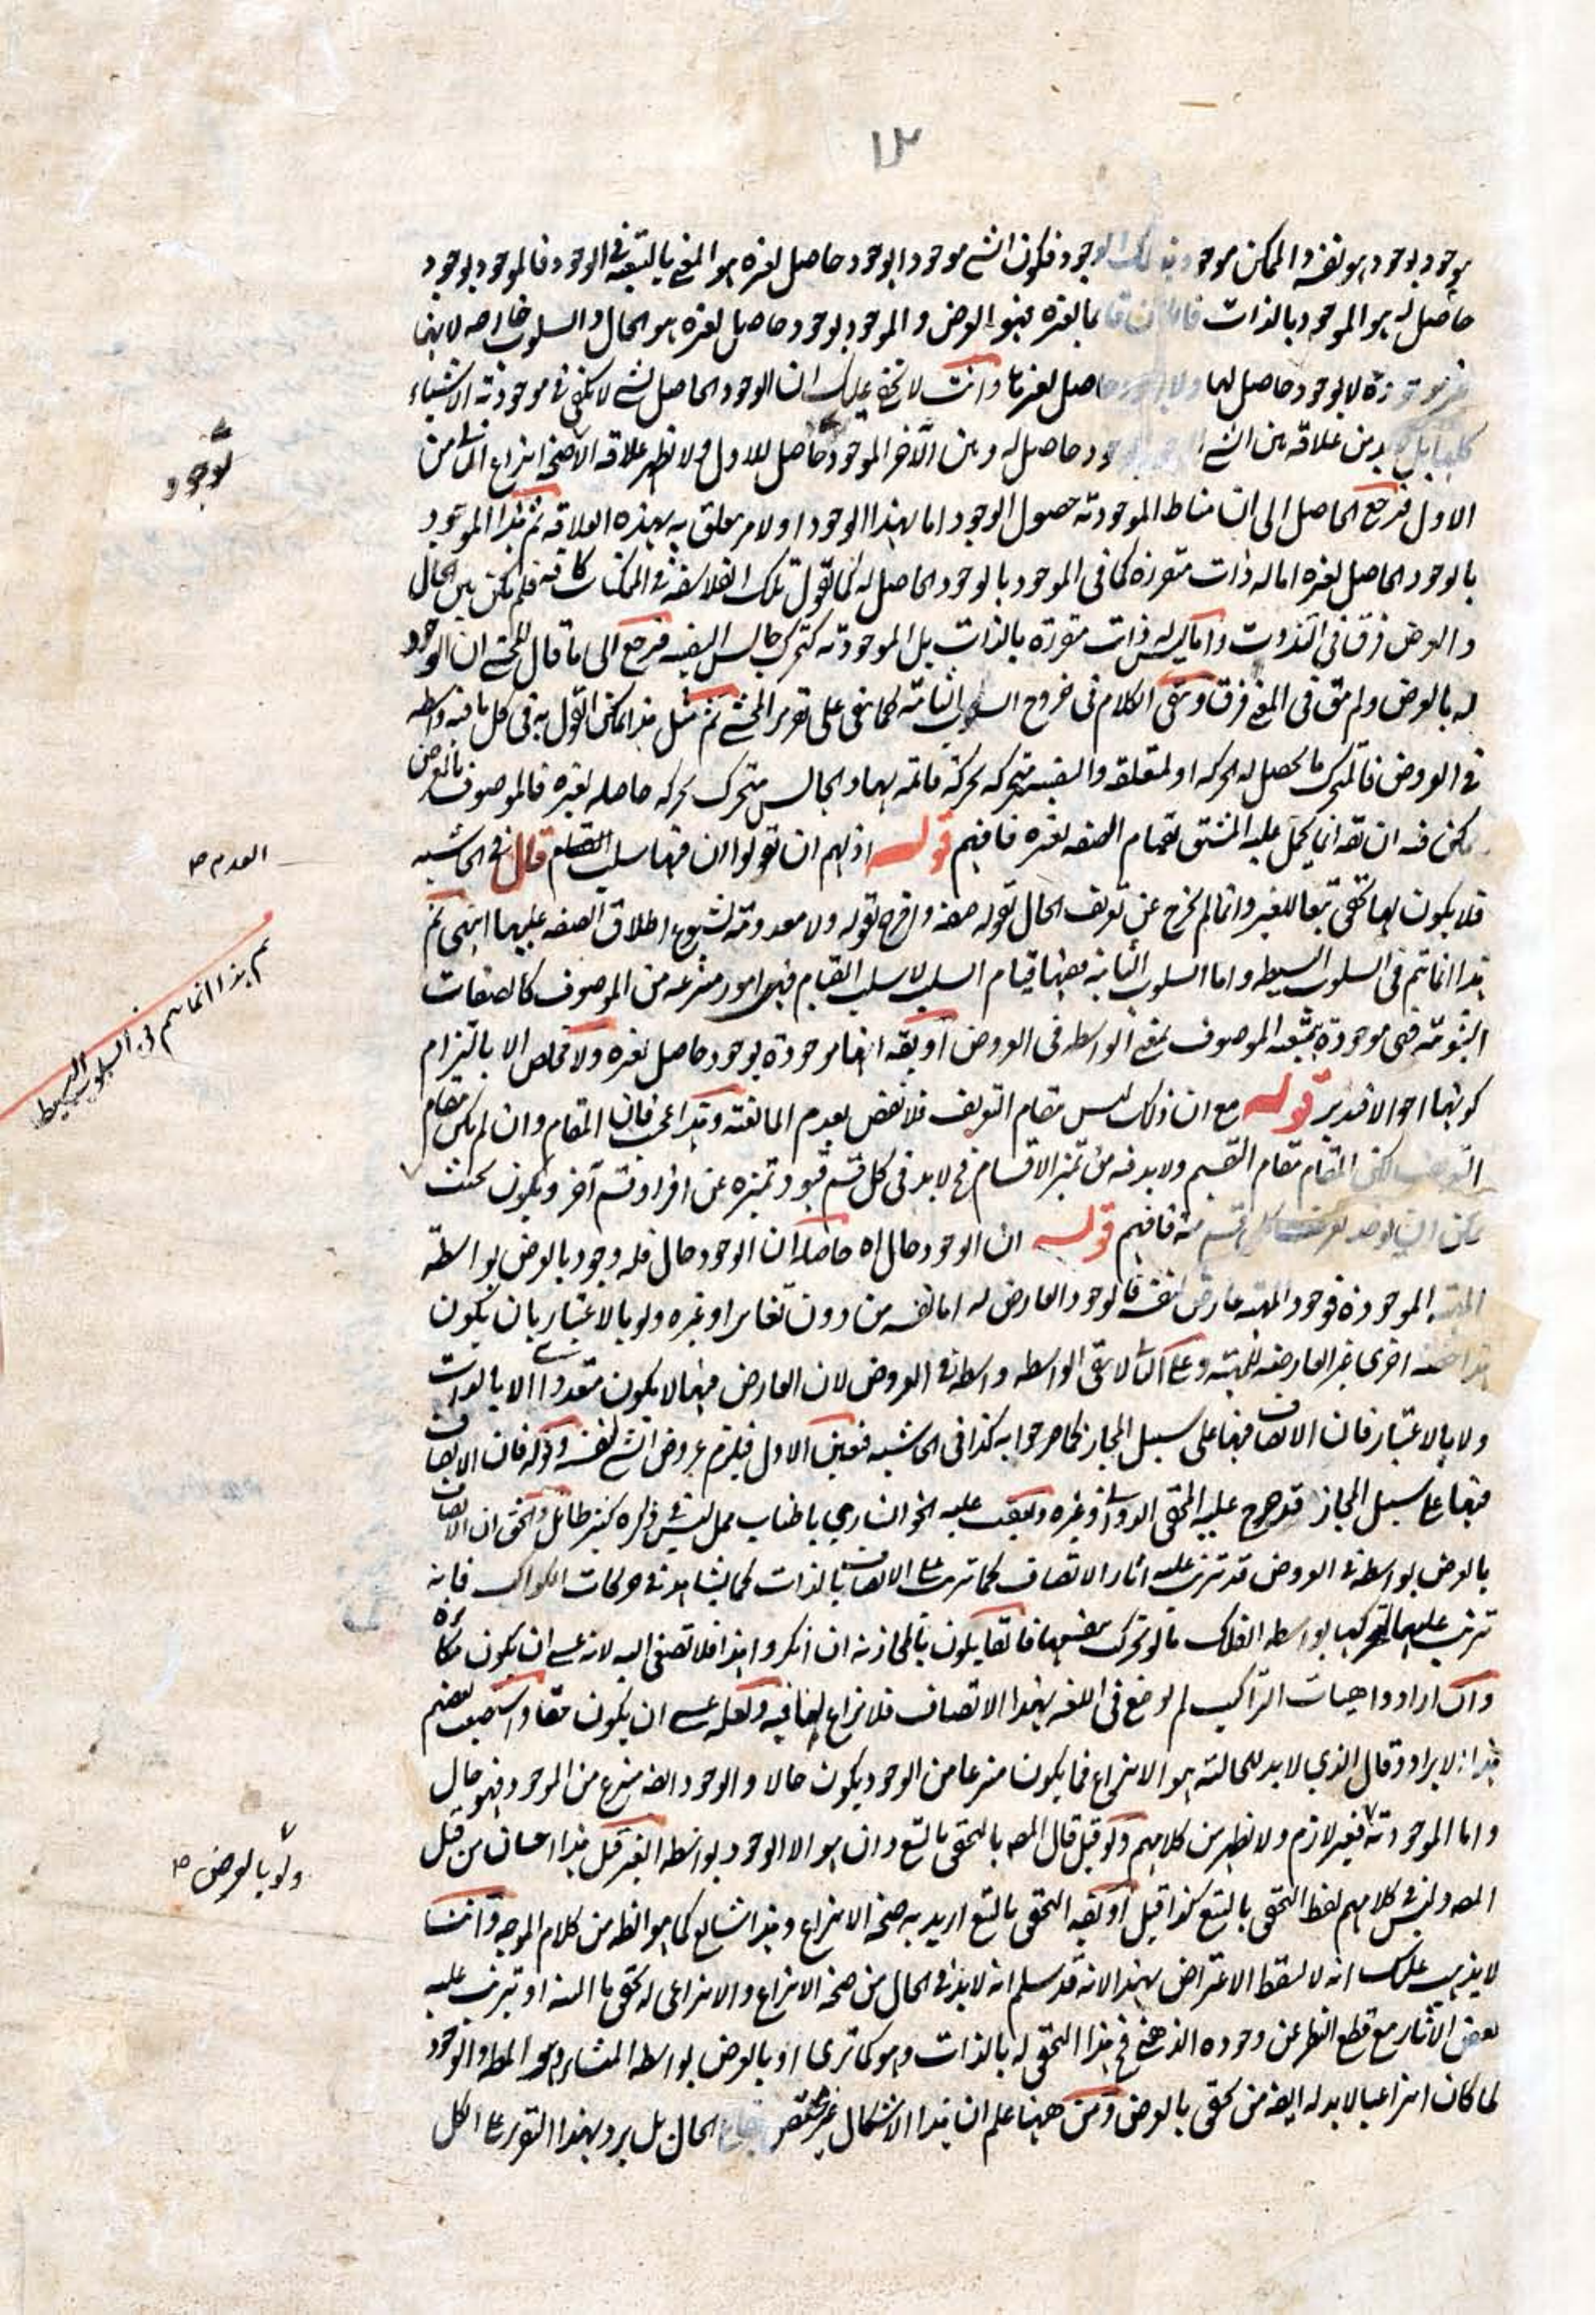 ١٣
موجود بوجود هو نفسه والممكن موجود بذلك الوجود فكون الشئ موجودا بوجود حاصل لغيره هو المعنى بالتبعية فى الوجود فالموجود بوجود
حاصل له هو الموجود بالذات فان كان قائما بالغيره فهو العرض والموجود بوجود حاصل لغيره هو الحال والسلوب خارجه لانها
لا بوجود حاصل لها ولا بوجود حاصل لغيرها وانت لا يخفى عليك ان الوجود الحاصل لشئ لا يكفى فى موجودية الاشياء
كلها بل لا بد من علاقة بين الشئ الموجود بوجود حاصل له وبين الآخر الموجود بوجود حاصل للاول ولا يظهر علاقة الا صحة انتزاع الثانى من
الاول فرجع الحاصل الى ان مناط الموجودية حصول الوجود اما لهذا الوجود او لامر يتعلق به بهذه العلاقة ثم هذا الموجود
بالوجود الحاصل لغيره اما له ذات متقررة كما فى الموجود بالوجود الحاصل له كما تقول تلك الفلاسفة فى الممكنات كافة فلم يكن بين الحال
والعرض فرق فى الذوت واما ليس له ذات متقررة بالذات بل الموجودية كتحرك جالس السفينة فرجع الى ما قال المحشى ان الوجود
له بالعرض ولم يبق فى المعنى فرق وبقى الكلام فى خروج السلوب الثابتة كما بقى على تقرير المحشى ثم مثل هذا يمكن القول به فى كل ما فيه واسطة
فى العروض فالمتحرك ما يحصل له الحركة او لمتعلقه والسفينة متحركة بحركة قائمة بها والجالس متحرك بحركة حاصلة لغيره فالموصوف بالعرض
يمكن فيه ان يقه انما يحمل عليه المشتق لقيام الصفه لغيره فافهم قوله اذ لهم ان يقولوا ان فيها سلب القيام قال فى الحاشيه
فلا يكون لها تحقق تبعا للغير وانما لم يخرج عن تعريف الحال بقوله صفة واخرج بقوله ولا معدومة لشيوع اطلاق الصفه عليهما انتهى ثم
هذا انما يتم فى السلوب البسيطه واما السلوب الثابته ففيها قيام السلب لا سلب القيام فهى امور منتزعه من الموصوف كالصفات
الثبوتية فهى موجودة بتبعية الموصوف بمعنى الواسطه فى العروض او يقه انها موجودة بوجود حاصل لغيره ولا مخلص الا بالتزام
كونها احوالا فتدبر قوله مع ان ذلك ليس مقام التعريف فلا نقض بعدم المانعية وهذا عجب فان المقام وان لم يكن مقام
التعريف لكن المقام مقام التقسيم ولا بد فيه من تميز الاقسام فح لا بد فى كل قسم قيود تميزه عن افراد قسم آخر ويكون بحيث
يمكن ان يوخذ تعريف كل قسم منه فافهم قوله ان الوجود حال اه حاصله ان الوجود حال فله وجود بالعرض بواسطة
المهية الموجودة فوجود المهيه عارض لنفسه فالوجود العارض له اما نفسه من دون تغاير او غيره ولو بالاعتبار بان يكون
اخرى غير العارضه للمهية وعلى الثانى لا يبقى الواسطه واسطة فى العروض لان العارض فيها لا يكون متعددا لا بالذات
ولا بالاعتبار فان الاتصاف فيها على سبيل المجاز كما صرحوا به كذا فى الحاشيه فتعين الاول فيلزم عروض الشئ لنفسه وقوله فان الاتصاف
فيها على سبيل المجاز قد صرح عليه المحقق الدوانى وغيره وتعقب عليه الخوانسارى باطناب ممل ليس فى ذكره كثير طائل والحق ان الاتصاف
بالعرض بواسطة فى العروض قد تترتب عليه اثار الاتصاف كما تترتب على الاتصاف بالذات كما يشاهد فى حركات الكواكب فانه
تترتب عليها لتحركها بواسطه الفلك ما لو تحرك بنفسها فالقايلون بالمجازية ان انكروا هذا فلا تصغى اليه لانه عسى ان يكون مكابرة
وان ارادوا هيات التراكيب لم لوضع فى اللغه بهذا الاتصاف فلا نزاع لنا فيه ولعله عسى ان يكون حقا واستصعب بعضهم
هذا الايراد وقال الذى لا بد للحالية هو الانتزاع فما يكون منتزعا من الوجود يكون حالا والوجود ايضا منتزع من الموجود فهو حال
واما الموجودية فغير لازم ولا يظهر من كلامهم ولو قيل قال المصه بالتحقق بالتبع وان هو الا الوجود بواسطه الغير قيل هذا احسان من قبل
المصه وليس فى كلامهم لفظ التحقق بالتبع كذا قيل او يقه التحقق بالتبع اريد به صحة الانتزاع وهذا شايع كما هو الظ من كلام الموجه وانت
لا يذهب عليك انه لا يسقط الاعتراض بهذا لانه قد سلم انه لا بد فى الحال من صحة الانتزاع والانتزاعى له تحقق ما البتة او تترتب عليه
بعض الاثار مع قطع النظر عن وجوده الذهنى فح هذا التحقق له بالذات وهو كما ترى او بالعرض بواسطه المنشاء وهو المط والوجود
لما كان انتزاعيا لا بد له ايضه من تحقق بالعرض ومن ههنا علم ان هذا الاشكال غير مختص الحال بل يرد بهذا التقرير على الكل
بوجود
العدم صه
ثم هذا انما يتم فى السلوب البسيط
ولو بالعرض صه